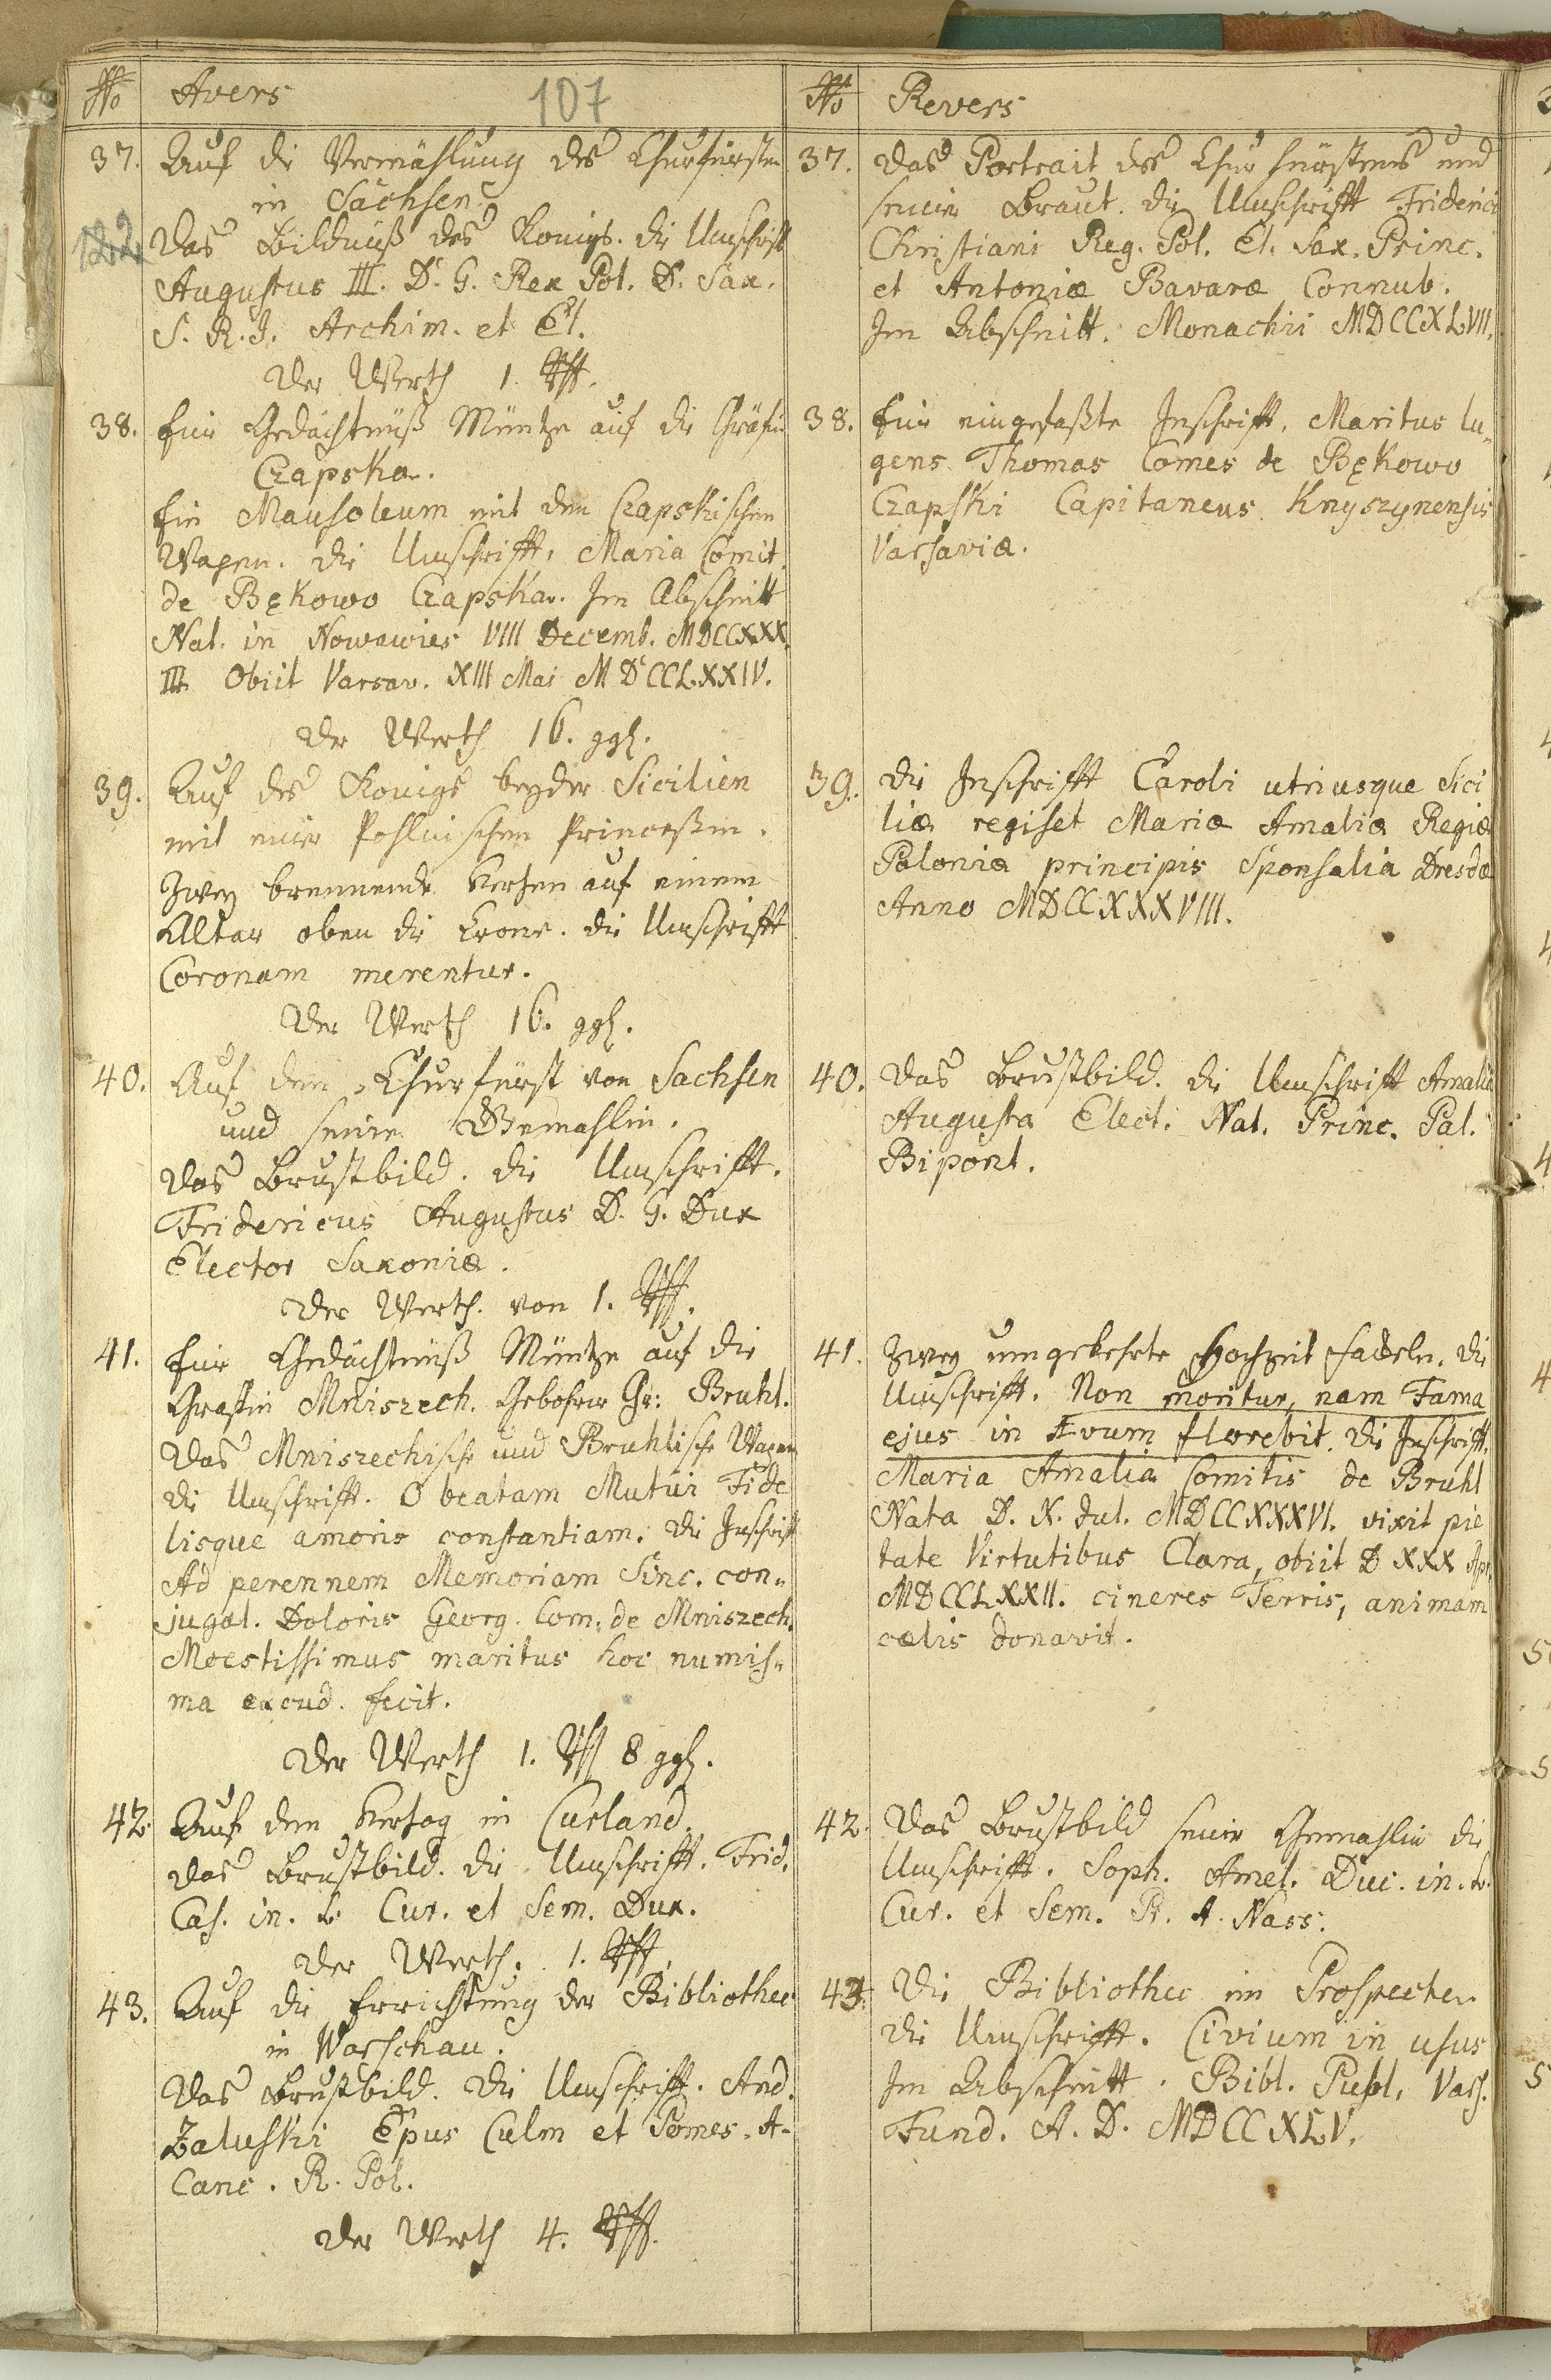 No Avers 107
37. Auf die Vermählung des Churfürsten
in Sachsen.
122
Das Bildnüß des Königs. die Umschrift
Augustus III. D. G. Rex Pol. D. Sax.
S. R. I. Archim. et El.
Der Werth 1. Rthl.
38. Eine Gedächtnüß Müntze auf die Gräfin
Czapska.
Ein Mausoleum mit den Czapskischen
Wapen. die Umschrifft, Maria Comit.
de Bękowo Czapska. Im Abschnitt
Nat. in Nowawies VIII Decemb. MDCCXXX
III. Obiit Varsav. XIII Mai MDCCLXXIV.
Der Werth 16. ggl.
39. Auf des Königs beyder Sicilien
mit einer Pohlnischen Princeßin.
Zwey brennende Hertzen auf einem
Altar oben die Crone. die Umschrifft
Coronam merentur.
Der Werth 16. ggl.
40. Auf den Churfürst von Sachsen
und seine Gemahlin.
Das Brustbild. die Umschrifft.
Fridericus Augustus D. G. Dux
Elector Saxoniæ.
Der Werth. von 1. Rthl.
41. Eine Gedächtnüß Müntze auf die
Gräffin Mniszech. Gebohrne Gr: Bruhl.
Das Mniszechische und Bruhlische Wapen
die Umschrifft. O beatam Mutui Fide
lisque amoris constantiam. die Inschrift
Ad perennem Memoriam Sinc. con„
jugal. Doloris Georg. Com. de Mniszech.
Moestissimus maritus hoc numis„
ma excud. fecit.
Der Werth 1. Rthl 8 ggl.
42. Auf den Hertzog in Curland.
Das Brustbild. die Umschrifft. Frid.
Cas. in. L. Cur. et Sem. Dux.
Der Werth. 1. Rthl.
43. Auf die Errichtung der Bibliothec
in Warschau.
Das Brustbild. Die Umschrifft. And.
Zaluski Epus Culm et Pomes. A.
Canc. R. Pol.
Der Werth 4. Rthl.
No Revers
37. Das Portrait des Chur fürstens und
seiner Braut. die Umschrifft Friderici
Christiani Reg. Pol. El. Sax. Princ.
et Antoniæ Bavaræ Connub.
Im Abschnitt. Monachii MDCCXLVII.
38. Eine eingefaßte Inschrifft. Maritus lu„
gens Thomas Comes de Bękowo
Czapski Capitaneus Knyszynensis
Varsaviæ.
39. Die Inschrifft Caroli utriusque Sici
liæ regis et Mariæ Amaliæ Regiæ
Poloniæ principis Sponsalia Dresdæ
Anno MDCCXXXVIII.
40. Das Brustbild. die Umschrifft Amalia
Augusta Elect. Nat. Princ. Pal.
Bipont.
41. Zwey umgekehrte Hochzeit Fackeln. die
Umschrifft. Non moritur, nam Fama
ejus in Ævum florebit. die Inschrifft.
Maria Amalia Comitis de Bruhl
Nata D. X. Jul. MDCCXXXVI. vixit pie
tate Virtutibus Clara, obiit D XXX Apr.
MDCCLXXII. cineres Terris, animam
cælis donavit.
42. Das Brustbild seiner Gemahlin die
Umschrifft. Soph. Amel. Duc. in. L.
Cur. et Sem. Pr. A. Nass.
43. Die Bibliothec im Prospecte.
die Umschrifft. Civium in usus
Im Abschnitt. Bibl. Publ. Vars.
Fund. A. D. MDCCXLV.